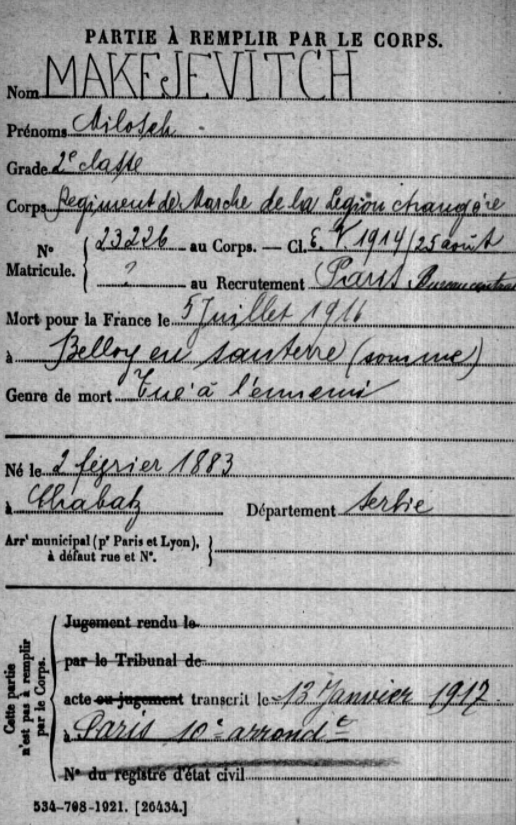 PARTIE À REMPLIR PAR LE CORPS.
Nom MAKEJEVITCH
Prénoms Milosch
Grade 2e classe
Corps Regiment de Marche de la Légion étrangère
N° Matricule. { 23226 au Corps. — Cl. E. V. 1914/25 août
? au Recrutement Paris Bureau central
Mort pour la France le 5 Juillet 1916
à Belloy en santerre (somme)
Genre de mort Tué à l'ennemi
Né le 2 février 1883
à Chabatz Département Serbie
Arrt municipal (pr Paris et Lyon), à défaut rue et N°. }
Cette partie n'est pas à remplir par le Corps.
Jugement rendu le
par le Tribunal de
acte ou jugement transcrit le 13 Janvier 1917
à Paris 10e arrondt
N° du registre d'état civil
534-708-1921. [26434.]